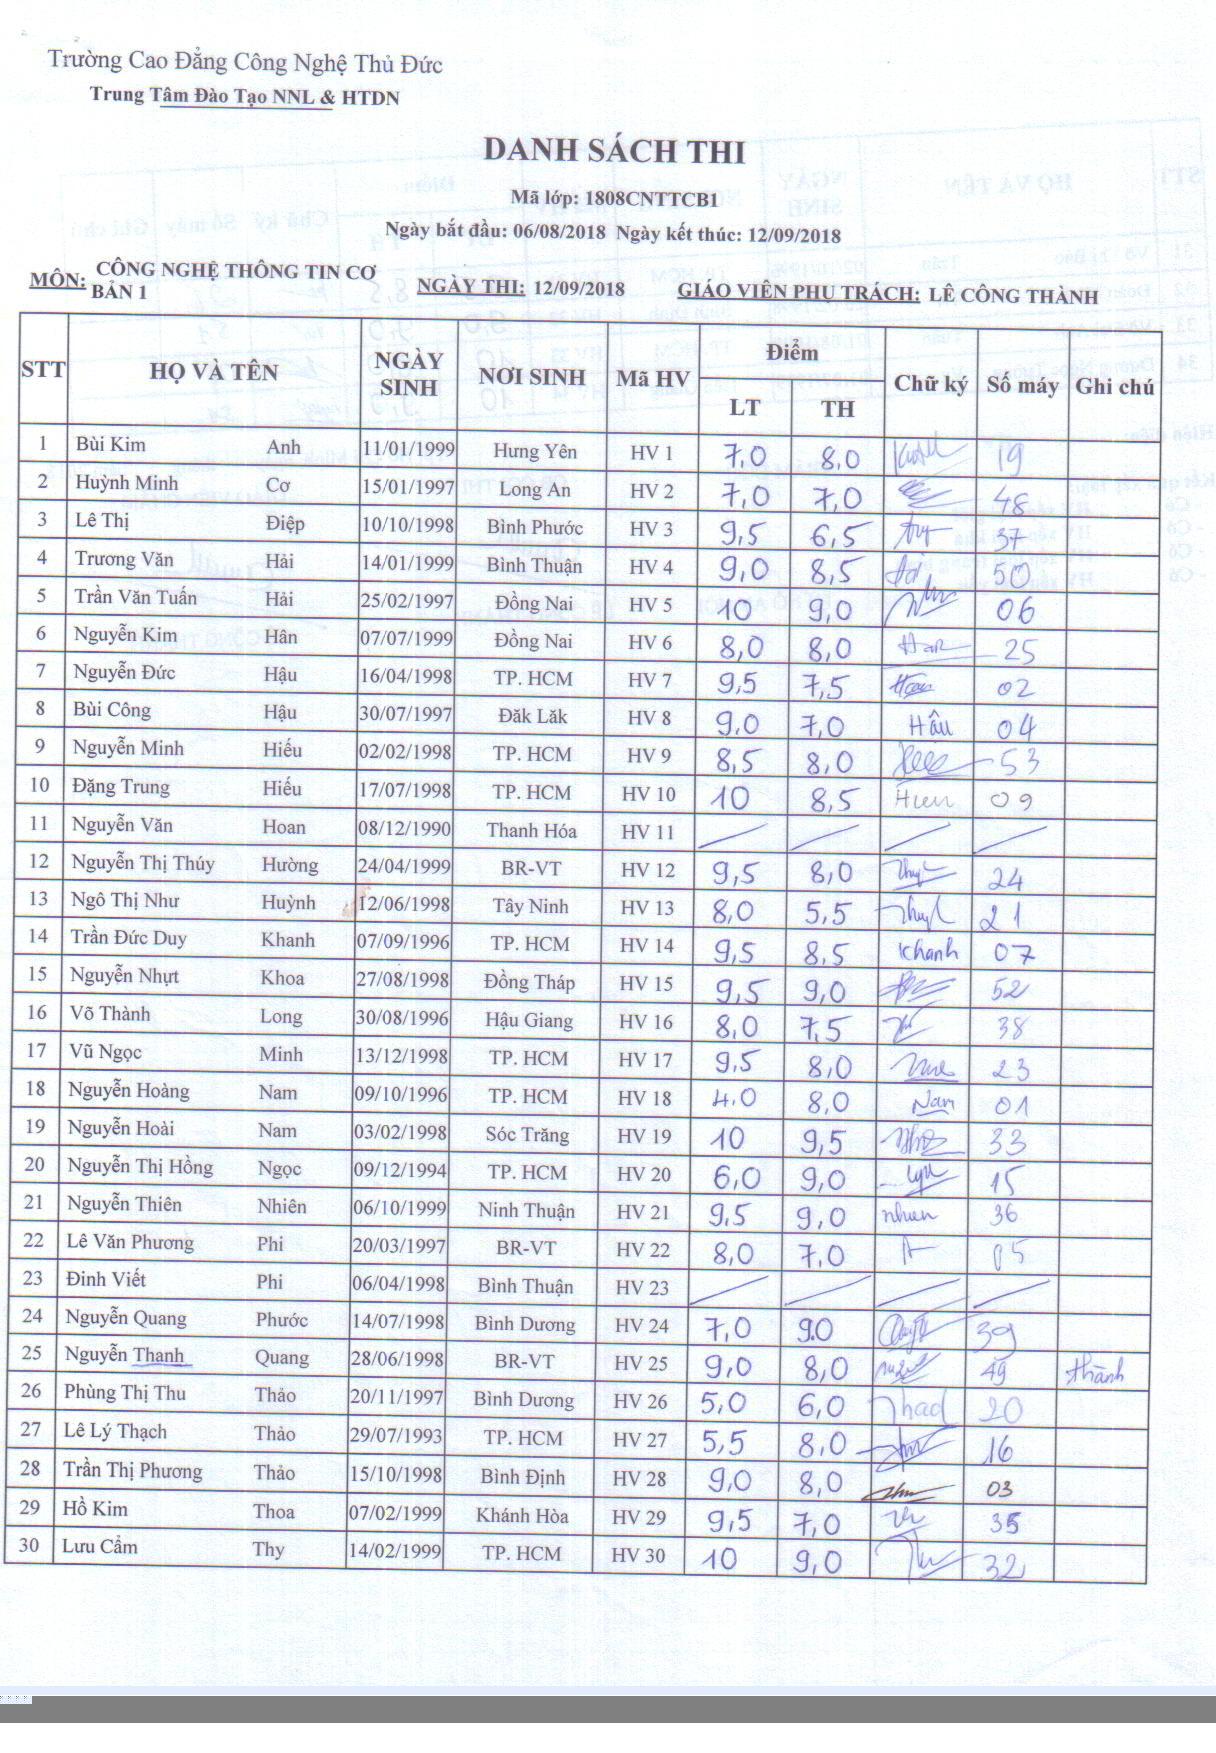 Trường Cao Đẳng Công Nghệ Thủ Đức
Trung Tâm Đào Tạo NNL & HTDN
DANH SÁCH THI
Mã lớp: 1808CNTTCB1
Ngày bắt đầu: 06/08/2018 Ngày kết thúc: 12/09/2018
MÔN: CÔNG NGHỆ THÔNG TIN CƠ BẢN 1 NGÀY THI: 12/09/2018 GIÁO VIÊN PHỤ TRÁCH: LÊ CÔNG THÀNH
STT HỌ VÀ TÊN NGÀY SINH NƠI SINH Mã HV Điểm LT TH Chữ ký Số máy Ghi chú
1 Bùi Kim Anh 11/01/1999 Hưng Yên HV 1 7,0 8,0 19
2 Huỳnh Minh Cơ 15/01/1997 Long An HV 2 7,0 7,0 48
3 Lê Thị Điệp 10/10/1998 Bình Phước HV 3 9,5 6,5 37
4 Trương Văn Hải 14/01/1999 Bình Thuận HV 4 9,0 8,5 50
5 Trần Văn Tuấn Hải 25/02/1997 Đồng Nai HV 5 10 9,0 06
6 Nguyễn Kim Hân 07/07/1999 Đồng Nai HV 6 8,0 8,0 25
7 Nguyễn Đức Hậu 16/04/1998 TP. HCM HV 7 9,5 7,5 02
8 Bùi Công Hậu 30/07/1997 Đăk Lăk HV 8 9,0 7,0 Hậu 04
9 Nguyễn Minh Hiếu 02/02/1998 TP. HCM HV 9 8,5 8,0 53
10 Đặng Trung Hiếu 17/07/1998 TP. HCM HV 10 10 8,5 09
11 Nguyễn Văn Hoan 08/12/1990 Thanh Hóa HV 11
12 Nguyễn Thị Thúy Hường 24/04/1999 BR-VT HV 12 9,5 8,0 24
13 Ngô Thị Như Huỳnh 12/06/1998 Tây Ninh HV 13 8,0 5,5 21
14 Trần Đức Duy Khanh 07/09/1996 TP. HCM HV 14 9,5 8,5 Khanh 07
15 Nguyễn Nhựt Khoa 27/08/1998 Đồng Tháp HV 15 9,5 9,0 52
16 Võ Thành Long 30/08/1996 Hậu Giang HV 16 8,0 7,5 38
17 Vũ Ngọc Minh 13/12/1998 TP. HCM HV 17 9,5 8,0 23
18 Nguyễn Hoàng Nam 09/10/1996 TP. HCM HV 18 4.0 8,0 Nam 01
19 Nguyễn Hoài Nam 03/02/1998 Sóc Trăng HV 19 10 9,5 33
20 Nguyễn Thị Hồng Ngọc 09/12/1994 TP. HCM HV 20 6,0 9,0 15
21 Nguyễn Thiên Nhiên 06/10/1999 Ninh Thuận HV 21 9,5 9,0 nhien 36
22 Lê Văn Phương Phi 20/03/1997 BR-VT HV 22 8,0 7,0 05
23 Đinh Viết Phi 06/04/1998 Bình Thuận HV 23
24 Nguyễn Quang Phước 14/07/1998 Bình Dương HV 24 7,0 9.0 39
25 Nguyễn Thanh Quang 28/06/1998 BR-VT HV 25 9,0 8,0 49 thành
26 Phùng Thị Thu Thảo 20/11/1997 Bình Dương HV 26 5,0 6,0 20
27 Lê Lý Thạch Thảo 29/07/1993 TP. HCM HV 27 5,5 8,0 16
28 Trần Thị Phương Thảo 15/10/1998 Bình Định HV 28 9,0 8,0 03
29 Hồ Kim Thoa 07/02/1999 Khánh Hòa HV 29 9,5 7,0 35
30 Lưu Cẩm Thy 14/02/1999 TP. HCM HV 30 10 9,0 32